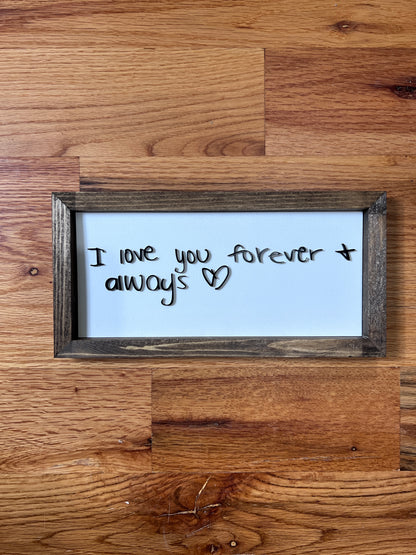 I love you forever +
always ♡